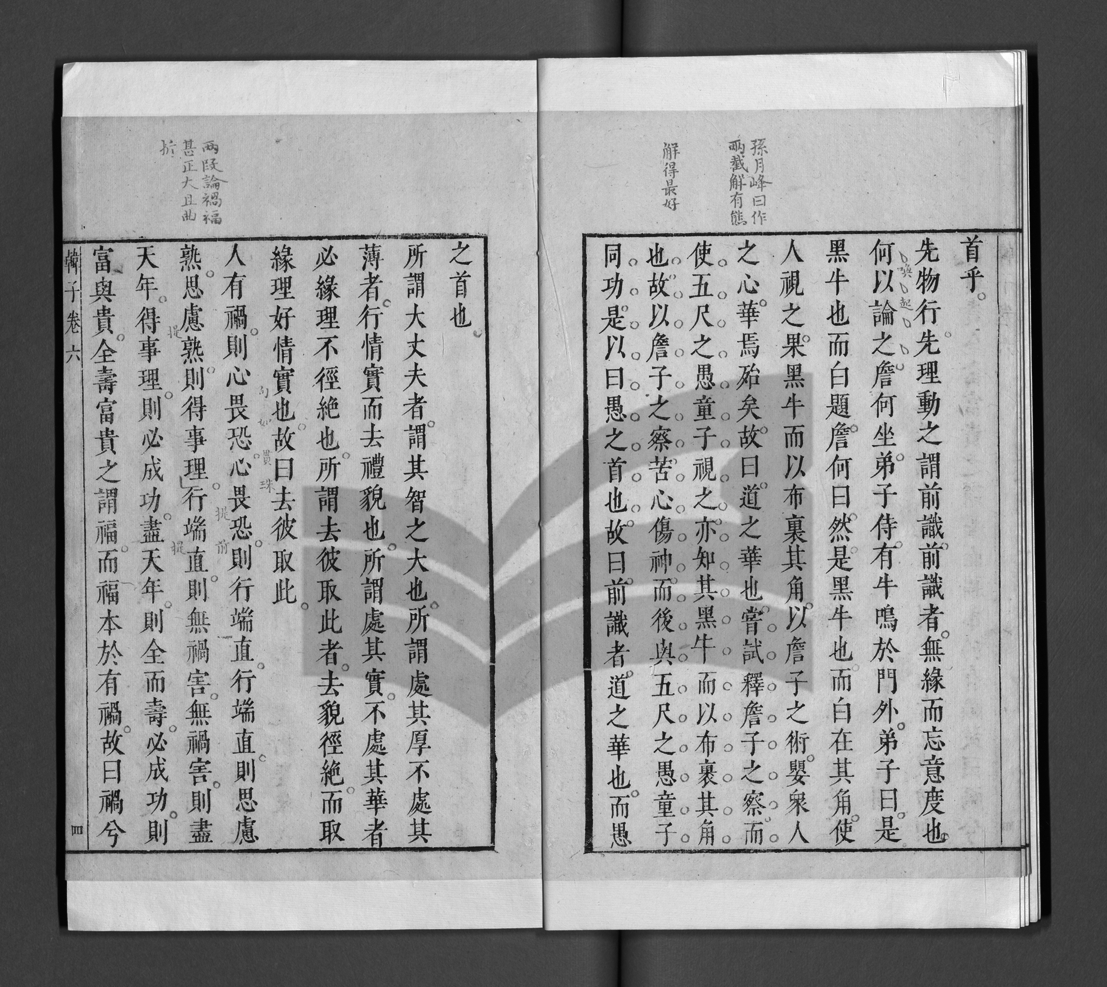 孫月峰曰作
兩截解有態
解得最好
首乎。
先物行先理動之謂前識前識者無緣而忘意度也
何以論之詹何坐弟子侍有牛鳴於門外弟子曰是
黑牛也而白題詹何曰然是黑牛也而白在其角使
人視之果黑牛而以布裹其角以詹子之術嬰衆人
之心華焉殆矣故曰道之華也嘗試釋詹子之察而
使五尺之愚童子視之亦知其黑牛而以布裹其角
也故以詹子之察苦心傷神而後與五尺之愚童子
同功是以曰愚之首也故曰前識者道之華也而愚
兩段論禍福
甚正大且曲
折
之首也。
所謂大丈夫者謂其智之大也所謂處其厚不處其
薄者行情實而去禮貌也所謂處其實不處其華者
必緣理不徑絶也所謂去彼取此者去貌徑絶而取
緣理好情實也故曰去彼取此。
人有禍則心畏恐心畏恐則行端直行端直則思慮
熟思慮熟則得事理行端直則無禍害無禍害則盡
天年得事理則必成功盡天年則全而壽必成功則
富與貴全壽富貴之謂福而福本於有禍故曰禍兮
韓子卷六
四